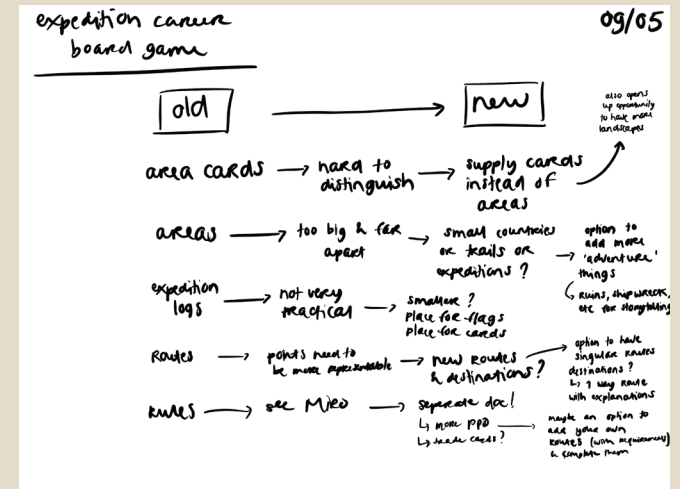 expedition career
board game
09/05
old
new
also opens
up opportunity
to have more
landscapes
area cards
hard to
distinguish
supply cards
instead of
areas
areas
too big & far
apart
small countries
or trails or
expeditions?
option to
add more
'adventure'
things
ruins, shipwreck,
etc for storytelling
expedition
logs
not very
practical
smaller?
place for flags
place for cards
Routes
points need to
be more representable
new routes
& destinations?
option to have
singular routes
destinations?
1 way route
with explanations
Rules
see Miro
separate doc!
more PPD
trade cards?
maybe an option to
add your own
routes (with requirements)
& complete them